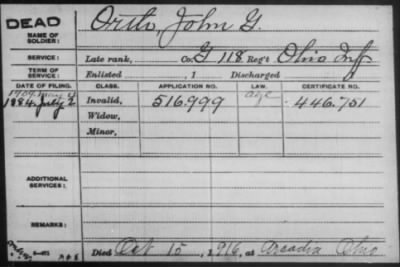 DEAD
NAME OF SOLDIER: Orth, John G.
SERVICE: Late rank, Co. G 118 Reg't Ohio Inf
TERM OF SERVICE: Enlisted , 1 Discharged
DATE OF FILING. CLASS. APPLICATION NO. LAW. CERTIFICATE NO.
1909. May
1884. July 2 Invalid, 516.999 age 446.751
Widow,
Minor,
ADDITIONAL SERVICES:
REMARKS:
Died Oct 15, 1916, at Arcadia Ohio